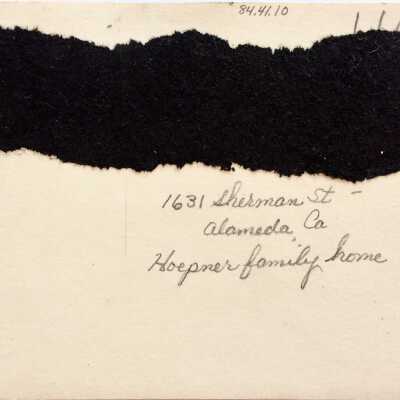 84.41.10
1631 Sherman St -
Alameda, Ca
Hoepner family home